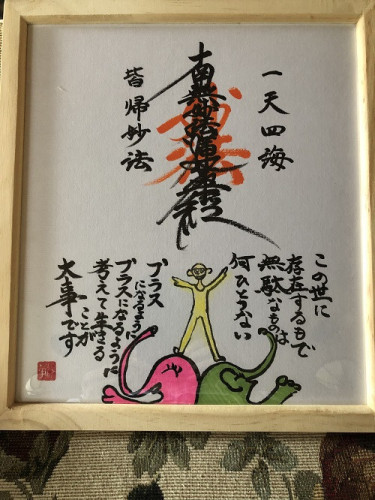 一天四海
南無妙法蓮華経
皆帰妙法
この世に
存在するもで
無駄なものは
何ひとつない
プラス
になるように
プラスになるように
考えて生きる
ことが
大事です